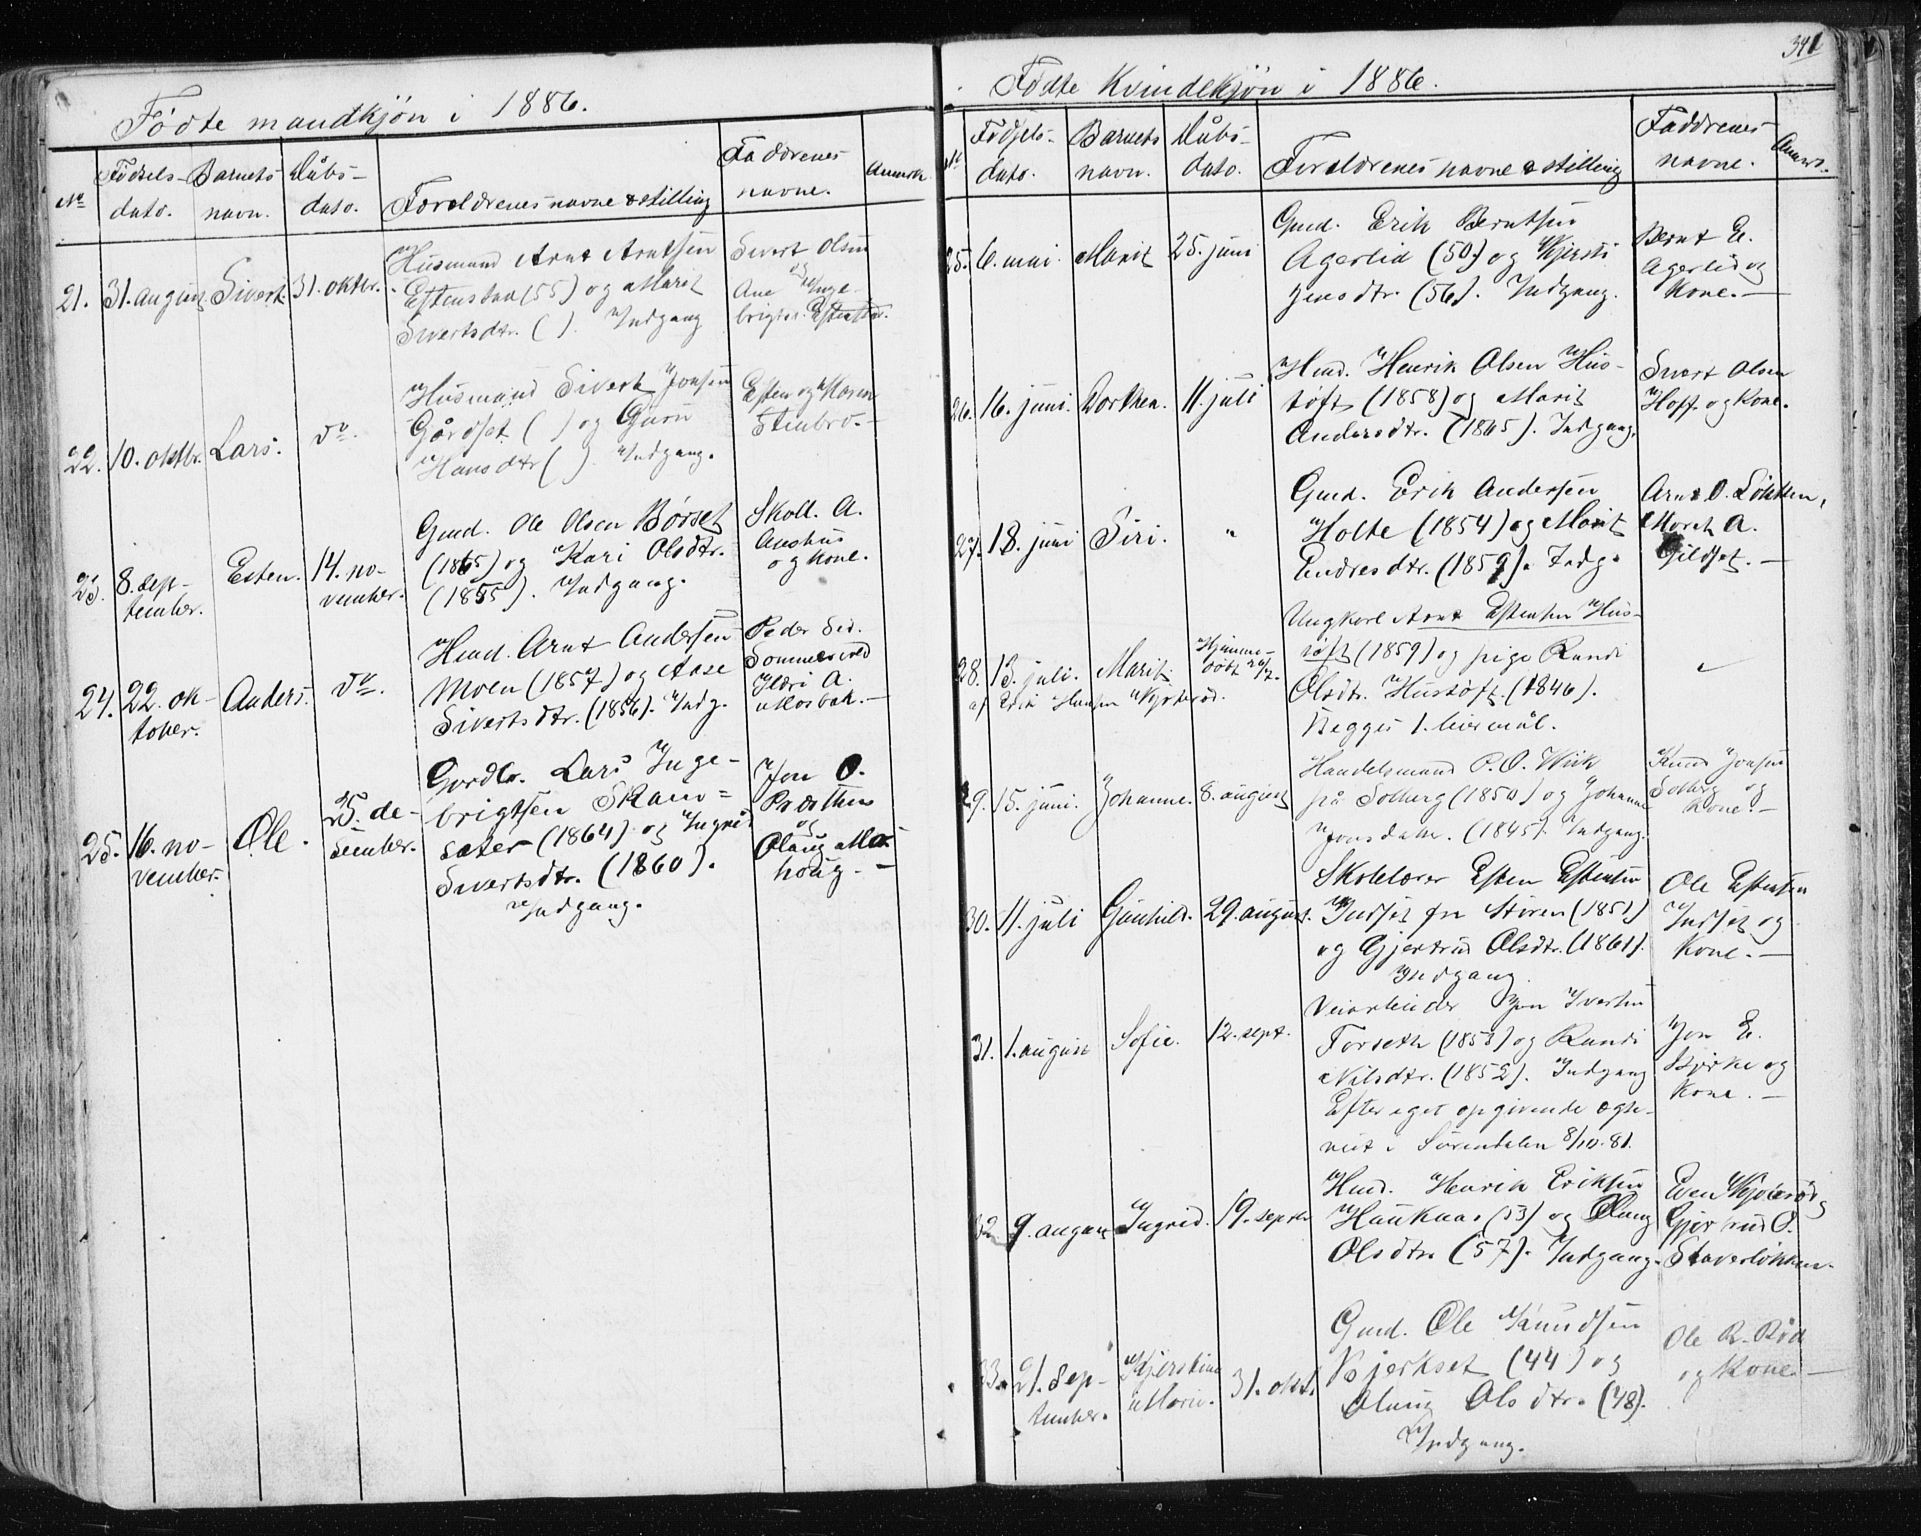 Fødte mandkjøn i 1886.
No
Fødsels-
dato.
Barnets
navn.
Dåbs-
dato.
Forældrenes navne & stilling
Faddrenes
navne.
Anmerk.
21. 31. august Sivert. 31. oktbr.
Husmand Arnt Arntsen
Estenstad (55) og Marit
Sivertsdtr. ( ). Indgang
Sivert Olsen
Ane Inge-
brigts. Estenstad.
22. 10. oktbr. Lars. do.
Husmand Sivert Jonsen
Gårdset ( ) og Guru
Hansdtr ( ). Indgang.
Esten og Maren
Stenbro.-
23. 8. sep-
tember.
Esten.
14. no-
vember.
Gmd. Ole Olsen Børset
(1865) og Kari Olsdtr.
(1855). Indgang.
Skoll. A.
Aashus
og Kone.
24. 22. ok-
tober.
Anders. do.
Hmd. Arnt Andersen
Moen (1857) og Aase
Sivertsdtr. (1856). Indg.
Peder Siv.
Sommervold
Ildri A.
Mosbak.-
25. 16. no-
vember.
Ole.
25. de-
sember.
Gardbr. Lars Inge-
brigtsen Skam-
sater (1864) og Ingrid
Sivertsdtr. (1860).
Indgang.
Jon O.
Præsthus
og
Olaug Mo-
houg.-
341
Fødte Kvindekjøn i 1886.
No
Fødsels-
dato.
Barnets
navn.
Dåbs-
dato.
Forældrenes navne & stilling
Faddrenes-
navne.
Anmrk.
25. 6. mai. Marit 25. juni
Gmd. Erik Berntsen
Agerlid (50) og Kjersti
Jensdtr. (56). Indgang.
Bernt E.
Agerlid og
Kone.-
26. 16. juni. Dorthea. 11. juli
Hmd. Henrik Olsen Hus-
tøft (1858) og Marit
Andersdtr. (1865). Indgang.
Sivert Olsen
Hoff og Kone.
27. 18. juni Siri. "
Gmd. Erik Andersen
Holte (1854) og Marit
Endresdtr. (1859). Indg.
Arnt O. Løkken,
Marit A.
Gildset.-
28. 13. juli. Marit. Hjemme-
døbt 20/7.
af Erik Hansen Kjøterød.
Ungkarl Arnt Estensen Hus-
tøft (1859) og pige Randi
Olsdtr. Hustøft. (1846).
Begges 1. leiermål.
29. 15. juni. Johanne. 8. august
Handelsmand P. O. Wiik
på Solberg (1850) og Johanne
Jonsdatr. (1845). Indgang.
Knud Jonsen
Solberg og
Kone.-
30. 11. juli Gunhild. 29. august.
Skolelærer Esten Estensen
Indset fra Støren (1851)
og Gjertrud Olsdtr. (1861).
Indgang.
Ole Estensen
Indset og
Kone.-
31. 1. august Sofie. 12. sept.
Veiarbeider Jon Iversen
Forseth (1853) og Randi
Nilsdtr. (1852). Indgang
Efter eget opgivende ægte-
viet i Surendalen 8/10. 81.
Jon E.
Bjørke og
Kone.-
32. 9. august Ingrid. 19. septr
Hmd. Henrik Eriksen
Haukaas (53) og Olaug
Olsdtr. (57). Indgang.
Even Kjøterød og
Gjertrud O.
Staverløkken.
33. 21. Sep-
tember.
Kjerstine
Marie.
31. okt.
Gmd. Ole Knudsen
Bjerkset (44) og
Olaug Olsdtr. (48).
Indgang.
Ole R. Rød
og Kone.-